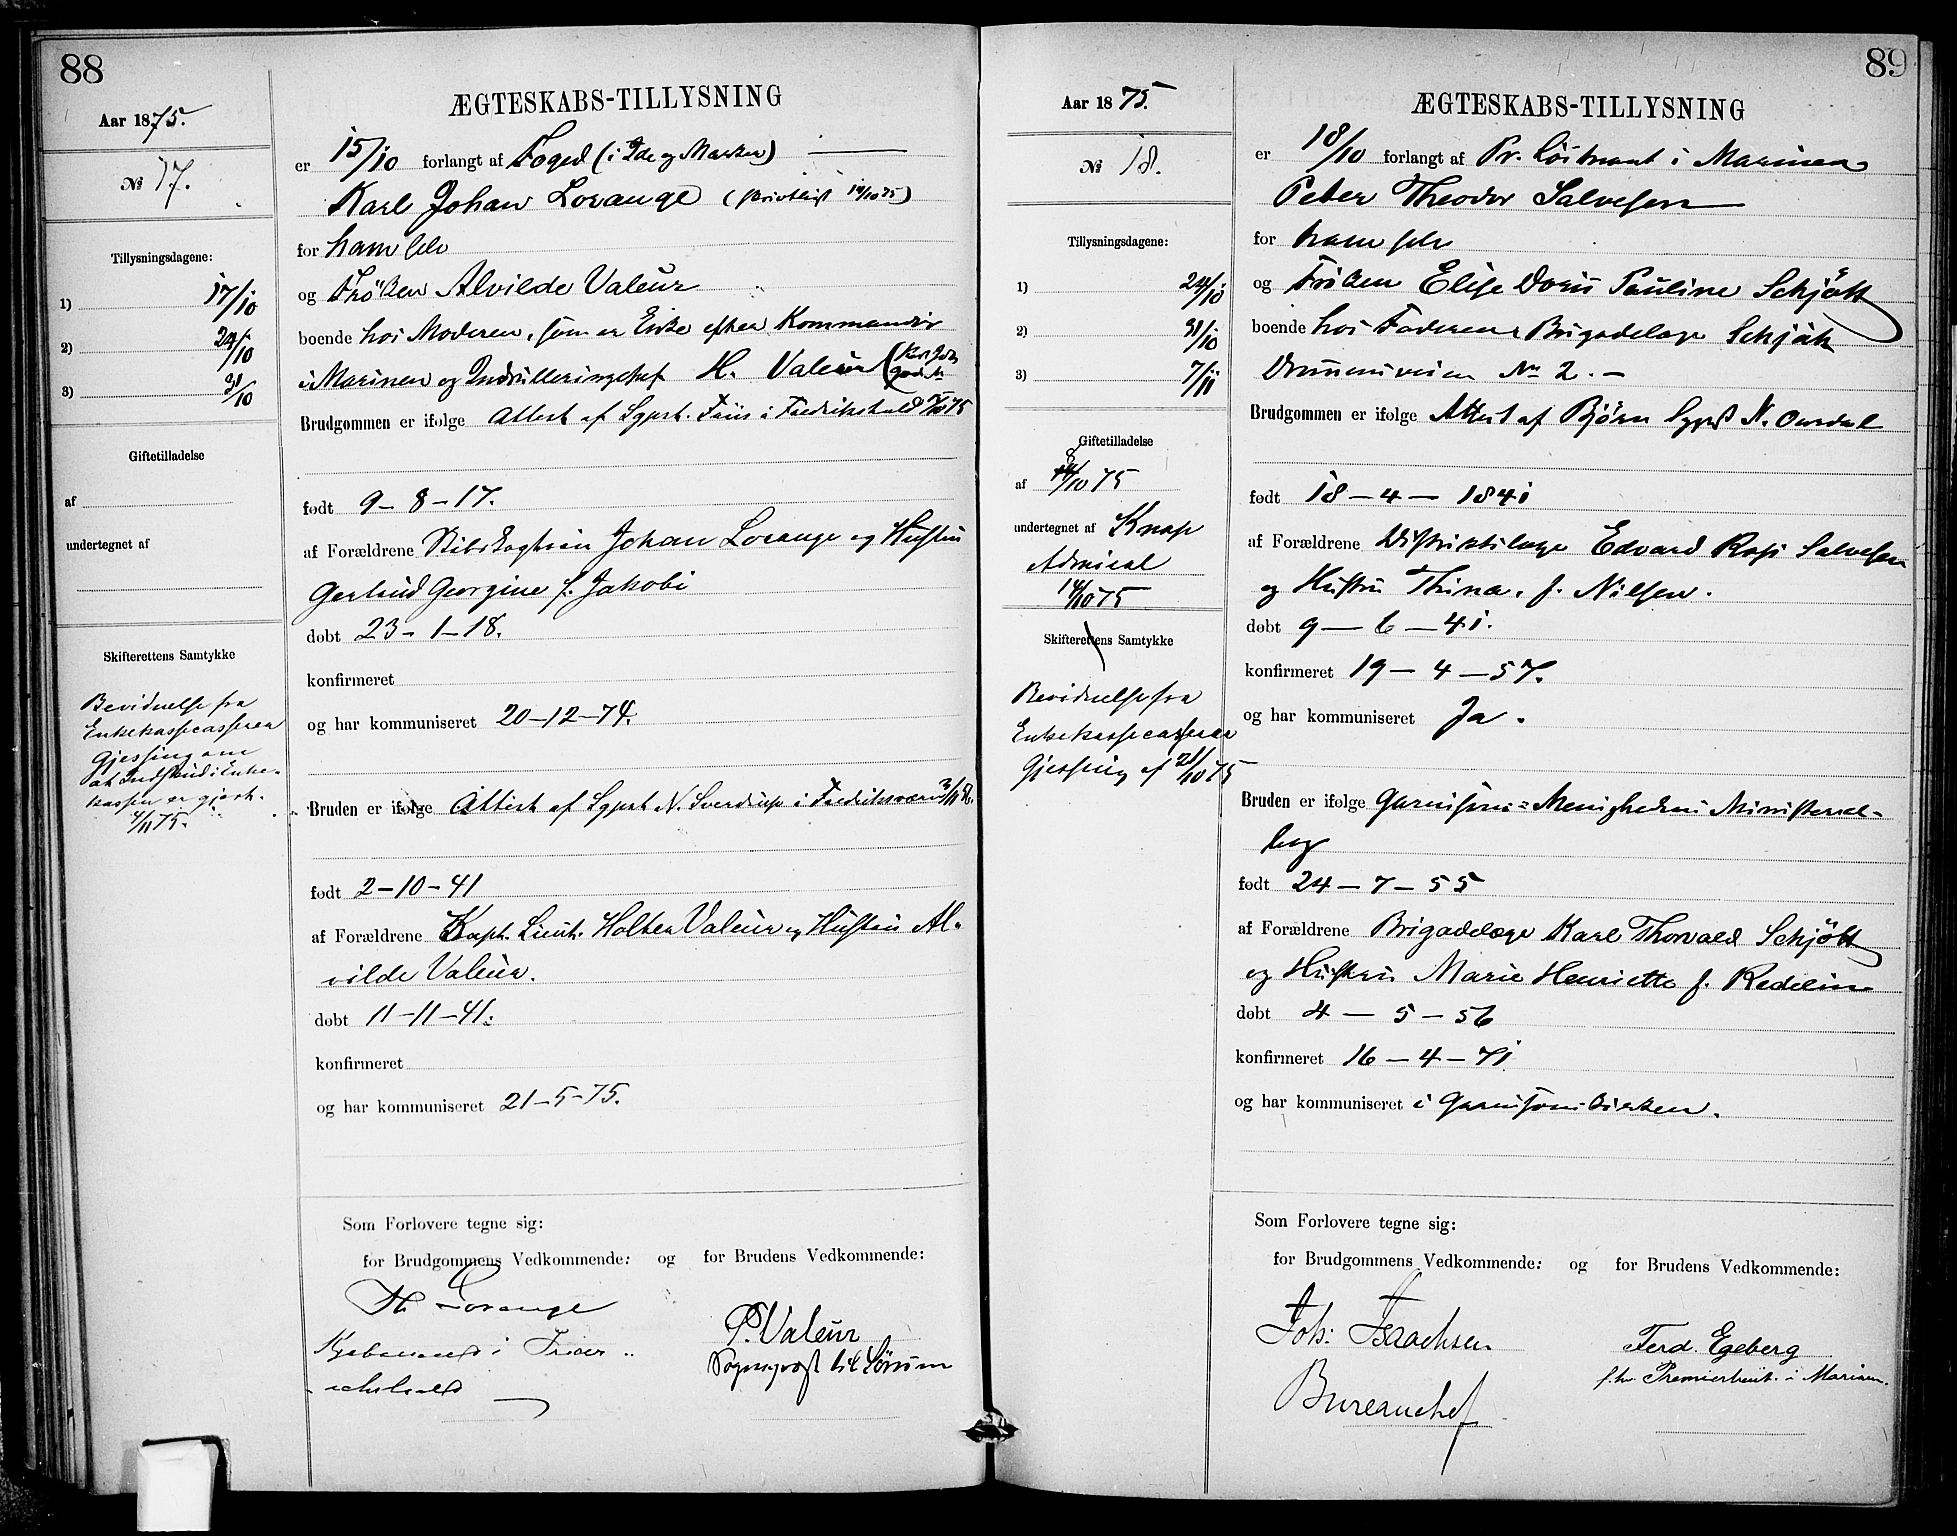 88
Aar 1875.
№ 17.
Tillysningsdagene:
1) 17/10
2) 24/10
3) 31/10
Giftetilladelse
af
undertegnet af
Skifterettens Samtykke
Bevidnelse fra
Enkekassecasserer
Gjessing om
at Indskud i Enke-
kassen er gjort.
4/11 75.
ÆGTESKABS-TILLYSNING
er 15/10 forlangt af Foged (i Ide og Marker)
Karl Johan Lorange (skriftligt 14/10 75)
for ham selv
og Frøken Alvilde Valeur
boende hos Moderen, som er Enke efter Kommandør
i Marinen og Indrulleringschef H. Valeur
Brudgommen er ifølge Attest af Sgprst. Friis i Fredrikshald 75
født 9-8-17.
af Forældrene Johan Lorange og Hustru
Gertrud Georgine f. Jakobi
døbt 23-1-18.
konfirmeret
og har kommuniseret 20-12-74.
Bruden er ifølge Attest af Sgprst N. Sverdrup i Fredriksværn
født 2-10-41
af Forældrene Kapt. Lieut. Holter Valeur og Hustru Al-
vilde Valeur.
døbt 11-11-41.
konfirmeret
og har kommuniseret 21-5-75.
Som Forlovere tegne sig:
for Brudgommens Vedkommende: og for Brudens Vedkommende:
H. Lorange
P. Valeur
Kjøbmand i
Sogneprest til Sørum
89
Aar 1875.
№ 18.
Tillysningsdagene:
1) 24/10
2) 31/10
3) 7/11
Giftetilladelse
af 8/10 75
undertegnet af Knap
Admiral
14/10 75
Skifterettens Samtykke
Bevidnelse fra
Enkekassecasserer
Gjessing af 21/10 75
ÆGTESKABS-TILLYSNING
er 18/10 forlangt af Pr. Løitnant i Marinen
Peter Theodor Salvesen
for ham selv
og Frøken Elise Doris Pauline Schjøtt
boende hos Faderen Brigadelæge Schjøtt
Drammensveien No 2.-
Brudgommen er ifølge Attest af Bjørn Sgprst N. Omdal
født 18-4-1841
af Forældrene Distriktslæge Edvard Salvesen
og Hustru Thina, f. Nilsen.
døbt 9-6-41.
konfirmeret 19-4-57.
og har kommuniseret Ja.
Bruden er ifølge Garnisons-Menighedens Ministerial-
bog
født 24-7-55
af Forældrene Brigadelæge Karl Thorvald Schjøtt
og Hustru Marie Henriette f.
døbt 4-5-56
konfirmeret 16-4-71
og har kommuniseret i Garnisonskirken.
Som Forlovere tegne sig:
for Brudgommens Vedkommende: og for Brudens Vedkommende:
Joh: Isaachsen
Ferd. Egeberg
Premierlieut. i Marinen.
Bureauchef